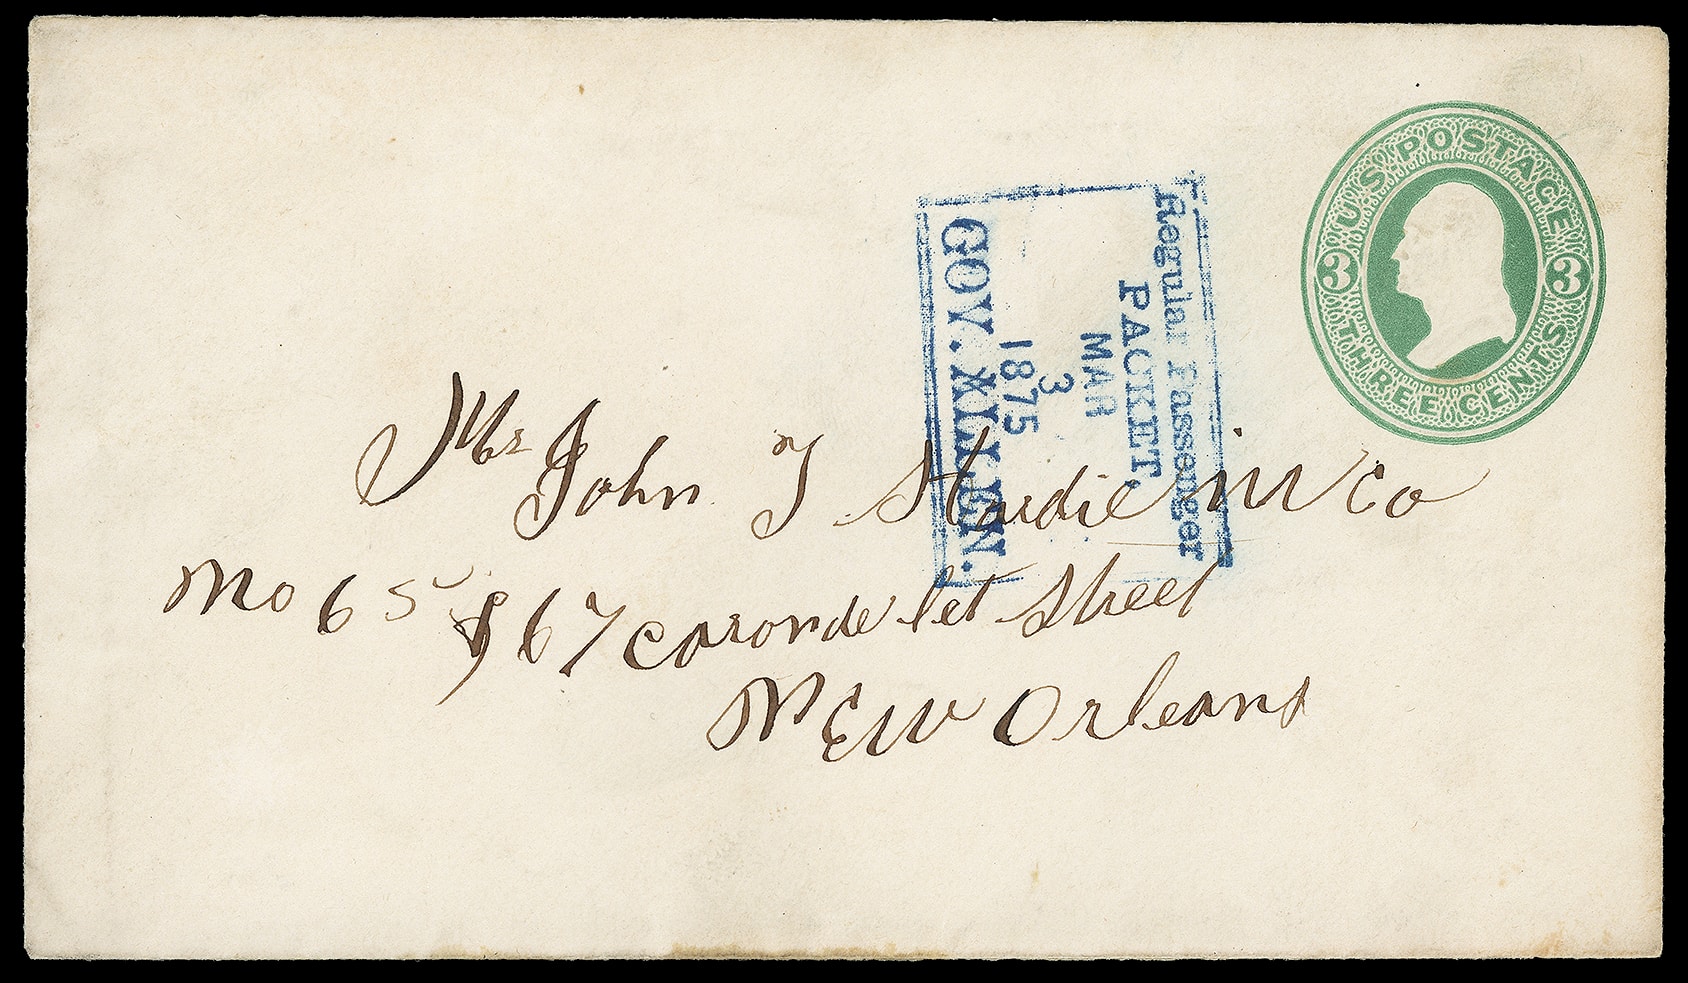 U S POSTAGE
3 3
THREE CENTS
Regular Passenger
PACKET.
MAR
3
1875
GOV. ALLEN.
Mr John T Hardie Co
No 65 & 67 Carondelet Street
New Orleans